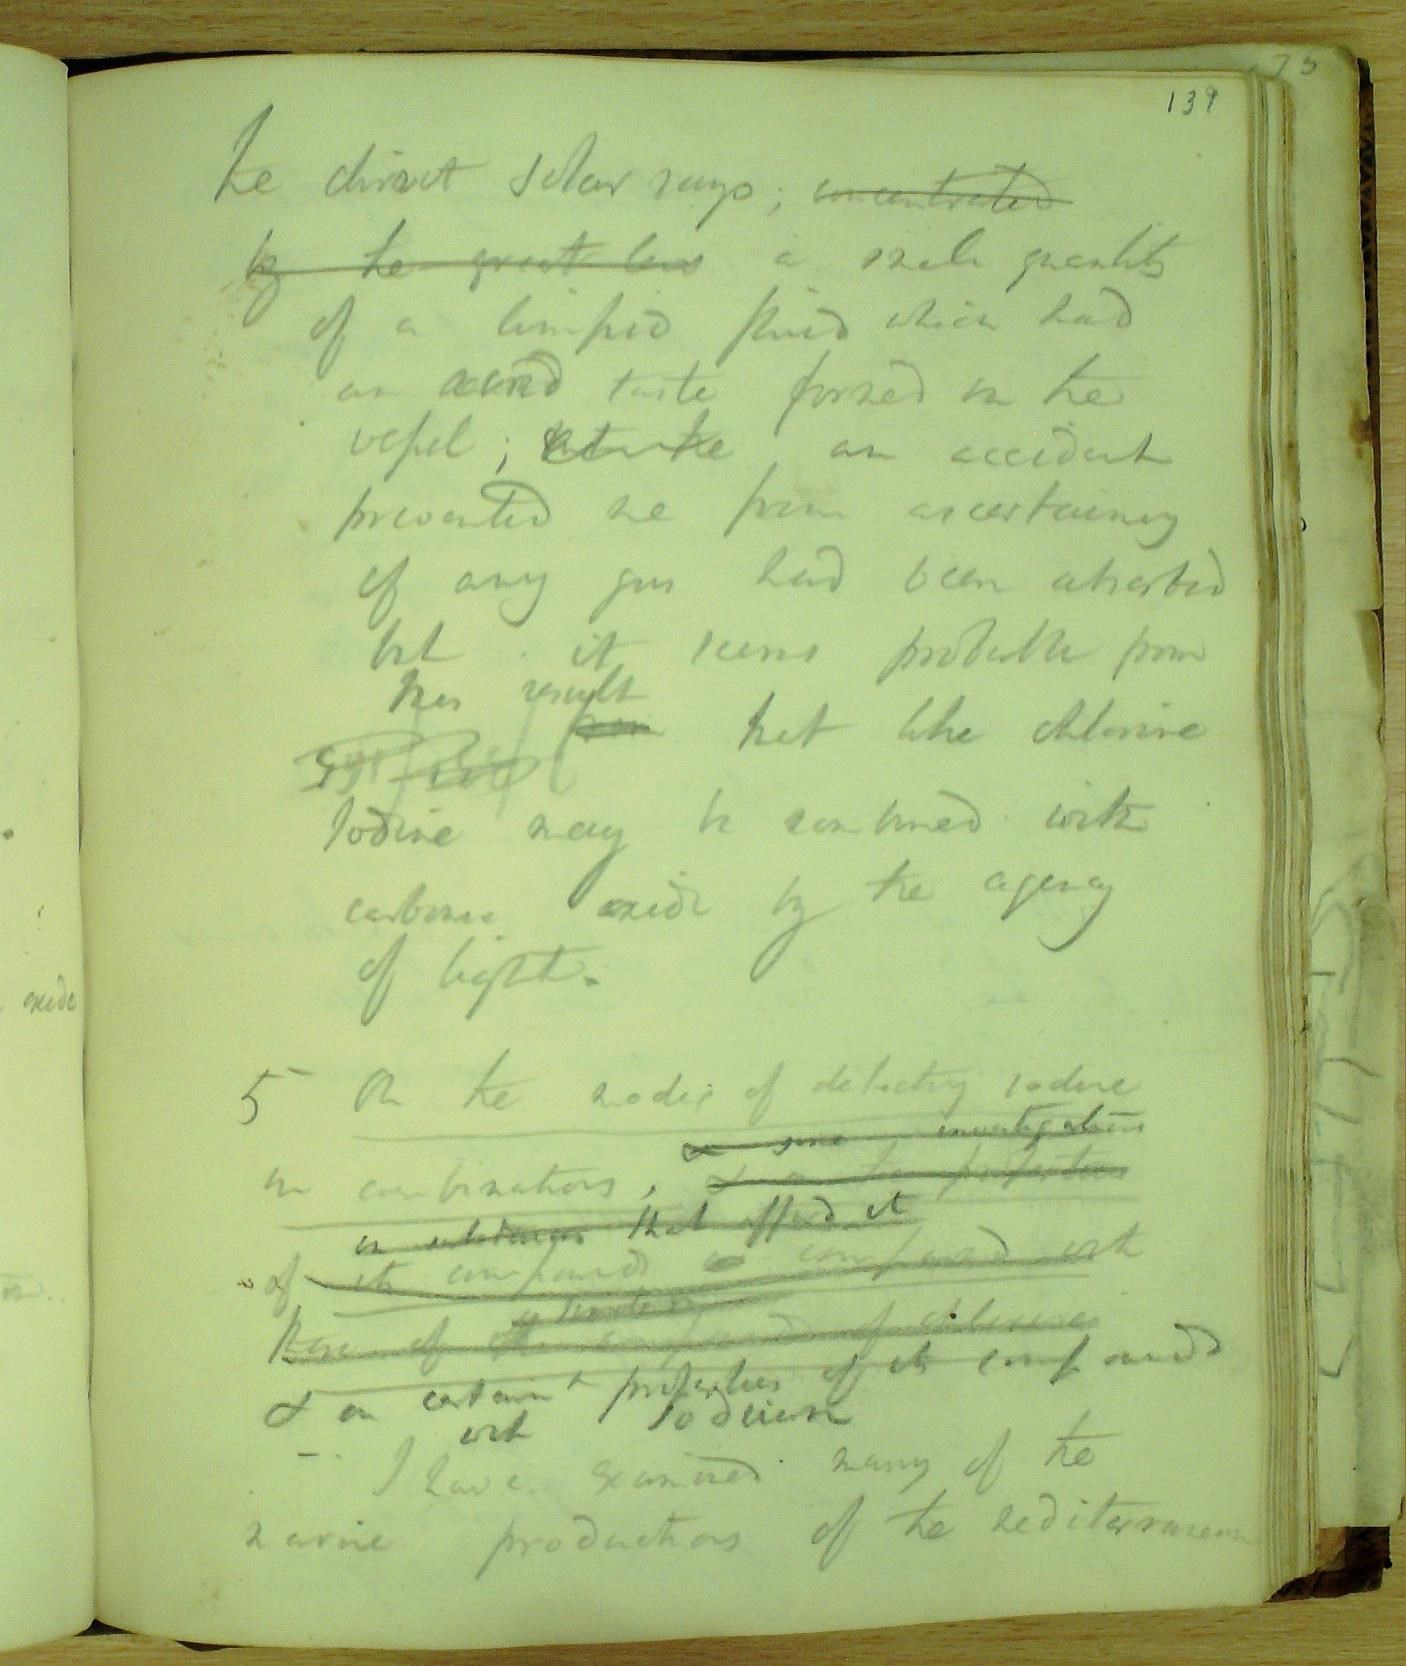 139
the direct solar rays; concentrated
by the great lens a small quantity
of a limpid fluid which had
an acrid taste formed in the
vessel; an accident
prevented me from ascertaining
if any gas had been absorbed
but it seems probable from
this result
that like chlorine
Iodine may be combined with
carbonic oxide by the agency
of light.
5 On the modes of detecting iodine
& some investigations
in combinations, & on the properties
in substances that afford it
of its compounds as compared with
those of the compounds of chlorine
& on certain properties of its compounds
with Sodium
I have examined many of the
marine productions of the Mediterranean
oxide